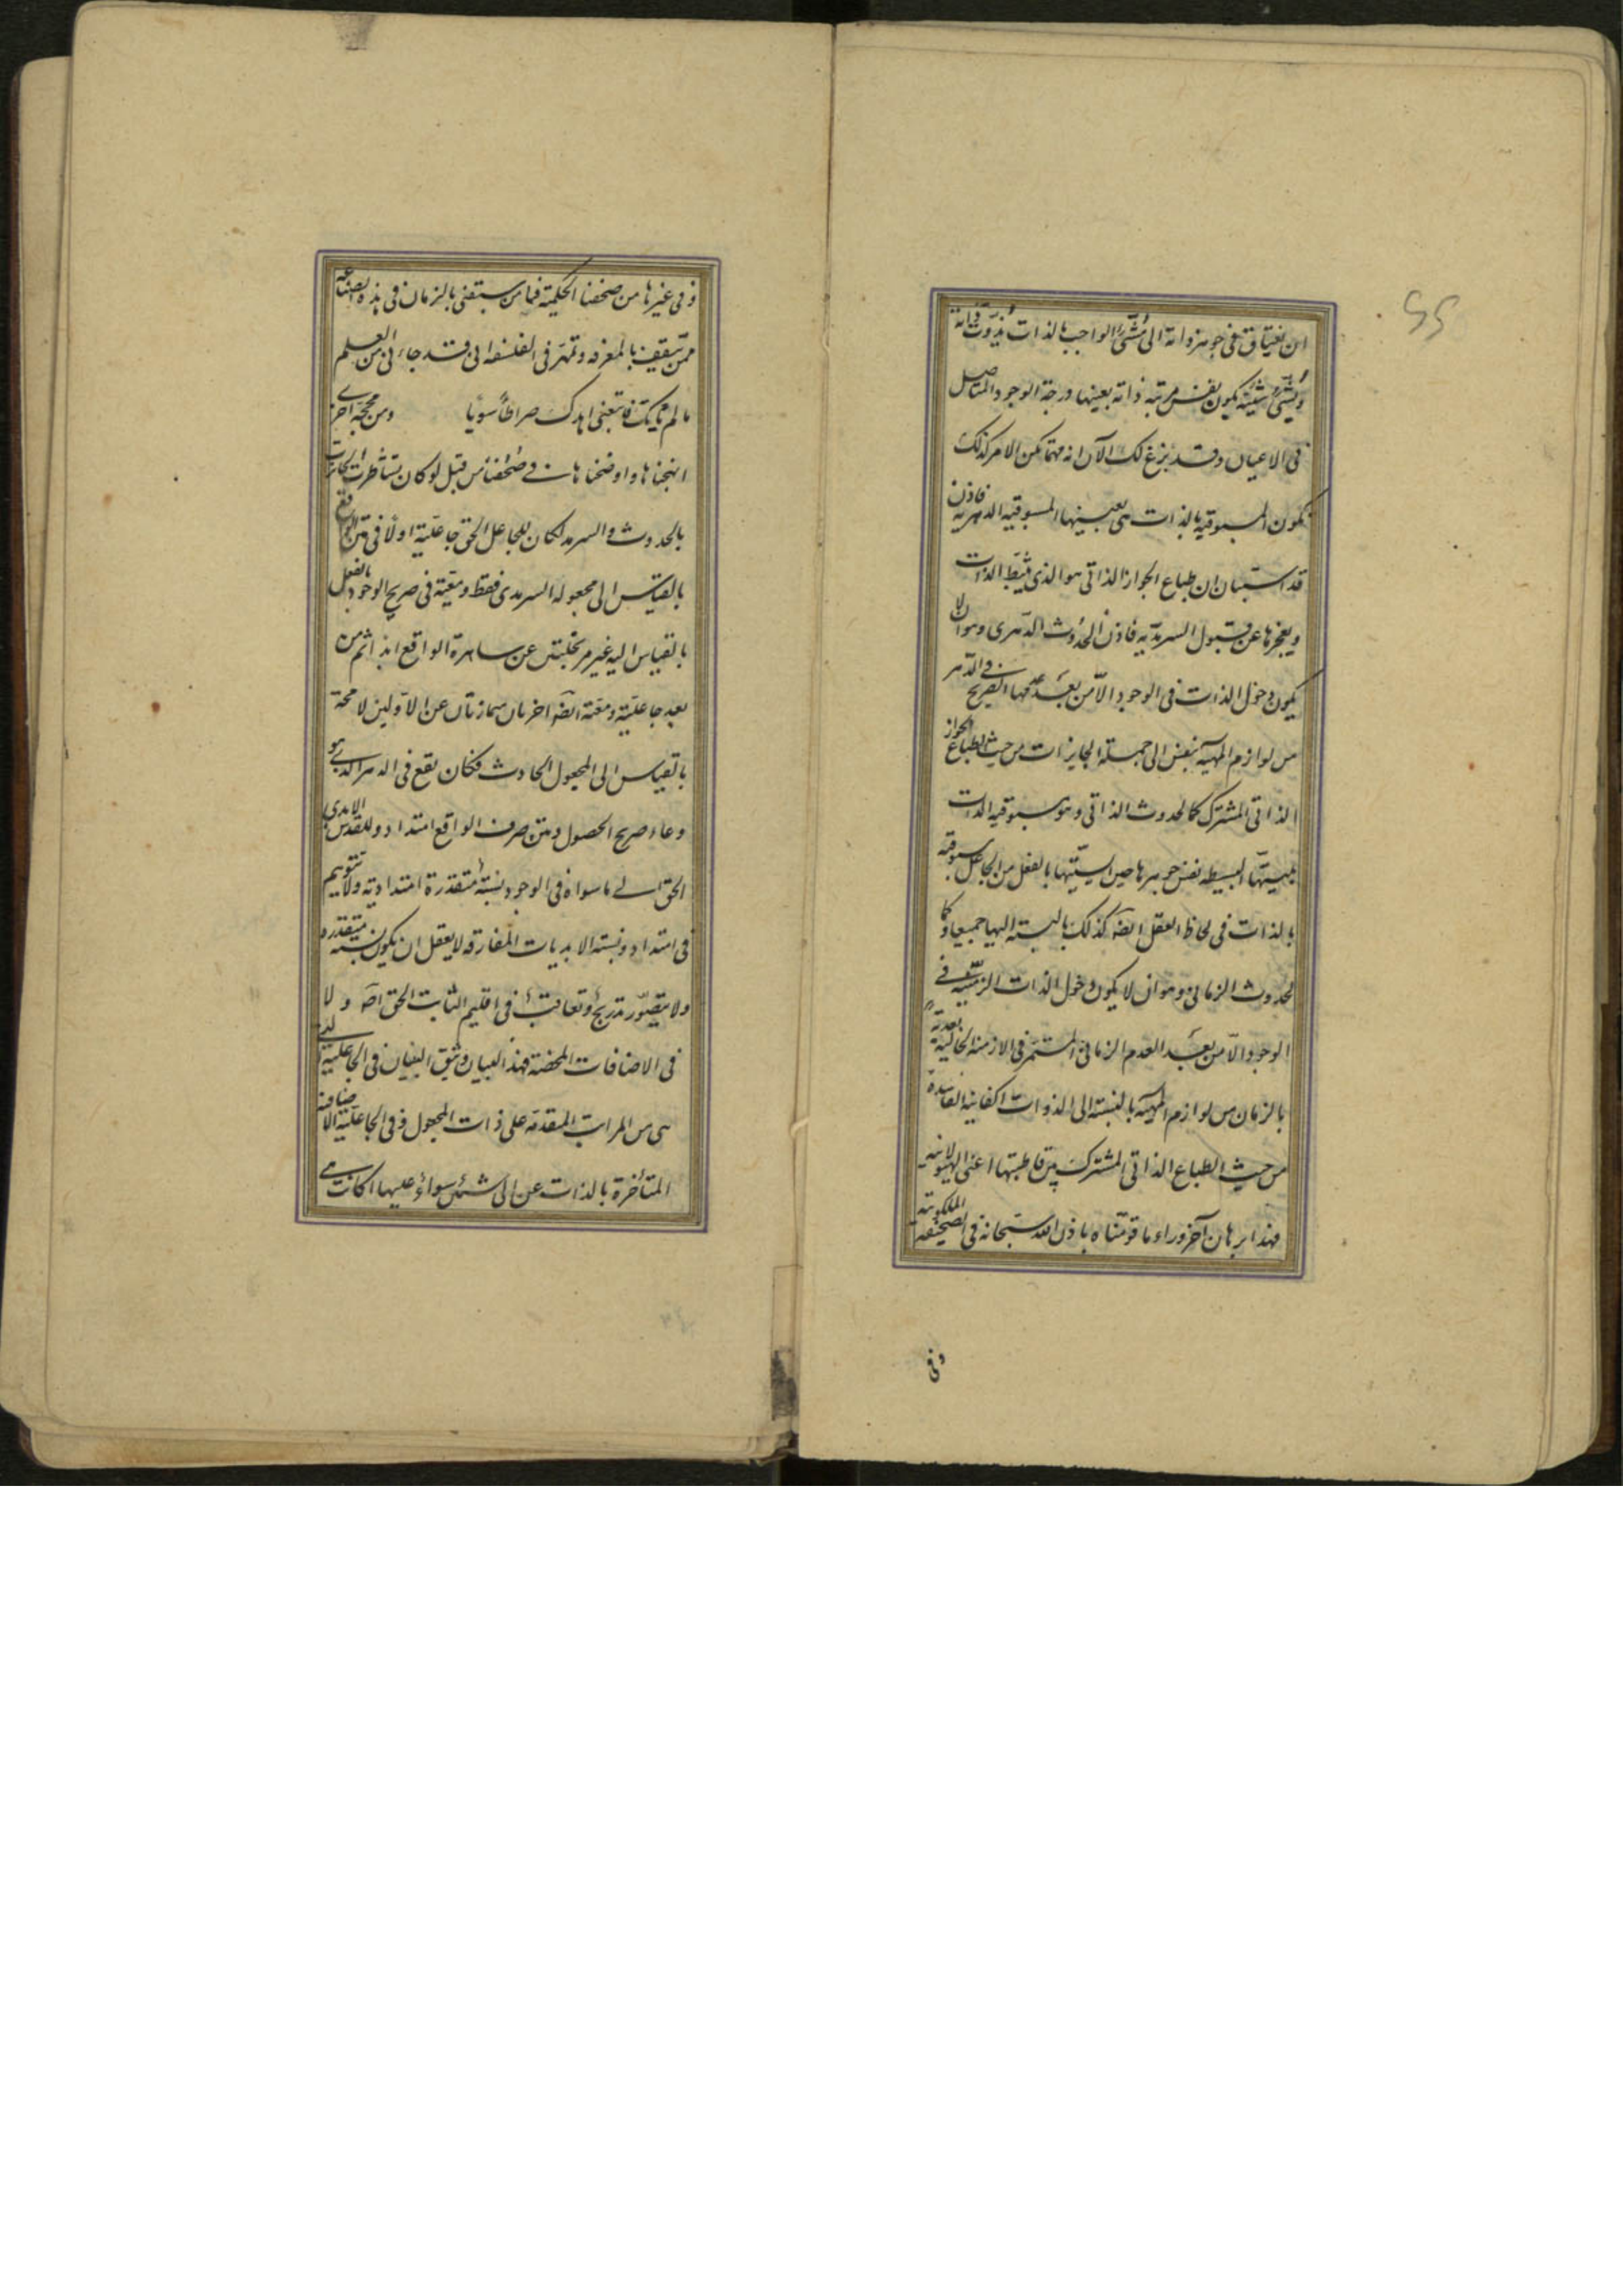 ان يفتاق في جوهر ذاته الى مشيّئ الواجب بالذات يذوّت ذاته
ويشيّئ شيئيته يكون نفس مرتبة ذاته بعينها درجة الوجود المتاصل
في الاعيان وقد بزغ لك الآن انه مهما يكن الامر كذلك
تكون المسبوقية بالذات هي بعينها المسبوقية الدهرية فاذن
قد استبان ان طباع الجواز الذاتي هو الذي يثبّط الذات
ويعجزها عن قبول السرمدية فاذن الحدوث الدهري وهو ان لا
يكون دخول الذات في الوجود الا من بعد عدمها الصريح في الدهر
من لوازم المهية بنفس الى جملة الجايزات من حيث طباع الجواز
الذاتي المشترك كالحدوث الذاتي وهو مسبوقية الذات
بليسيتها البسيطة نفس جوهرها حين ايسيتها بالفعل من الجاعل مسبوقية
بالذات في لحاظ العقل ايضا كذلك بالنسبة اليها جميعا وكما
الحدوث الزماني وهو ان لا يكون دخول الذات الزمنية في
الوجود الا من بعد العدم الزماني المستمر في الازمنة الخالية بعدية
بالزمان من لوازم المهية بالنسبة الى الذوات الكفاينة الفاسدة
من حيث الطباع الذاتي المشترك بين قاطبتها اعني الهيولانية
فهذا برهان آخر وراء ما قوّمناه باذن الله سبحانه في الصحيفة الملكوتية
وفي
وفي غيرها من صحفنا الحكمية فيا من ستبقني بالزمان في هذه الصناعة
ممن يتثقف بالمعرفة وتمهر في الفلسفة اني قد جاءني من العلم
ما لم ياتك فاتبعني اهدك صراطا سويا ومن محجة اخرى
انهجناها واوضحناها في صحفنا من قبل لو كان تشاطرت الجائزات
بالحدوث والسرمد لكان للجاعل الحق جاعلية اولا في متن الواقع
بالقياس الى مجعوله السرمدي فقط ومعية في صريح الوجود بالفعل
بالقياس اليه غير عن ساهرة الواقع ابدا ثم من
بعد جاعلية ومعية ايضا اخريان ممازتان عن الاوليين لا محة
بالقياس الى المجعول الحادث فكان يقع في الدهر الذي هو
وعاء صريح الحصول ومتن صرف الواقع امتداد وللقدس الابدي
الحق الى ما سواه في الوجود نسبة متقدرة امتدادية ولا تتوهم
في امتداد ونسبة الابديات المفارقة لا يعقل ان يكون نسبة متقدرة
ولا يتصور تدريج وتعاقب في اقليم الثابت الحق اصلا ولا
في الاضافات المحضة فهذا البيان وثيق البنيان في الجاعلية التي
هي من المراتب المتقدمة على ذات المجعول وفي الجاعلية الاضافية
المتأخرة بالذات عن سواء عليها اكانت هي